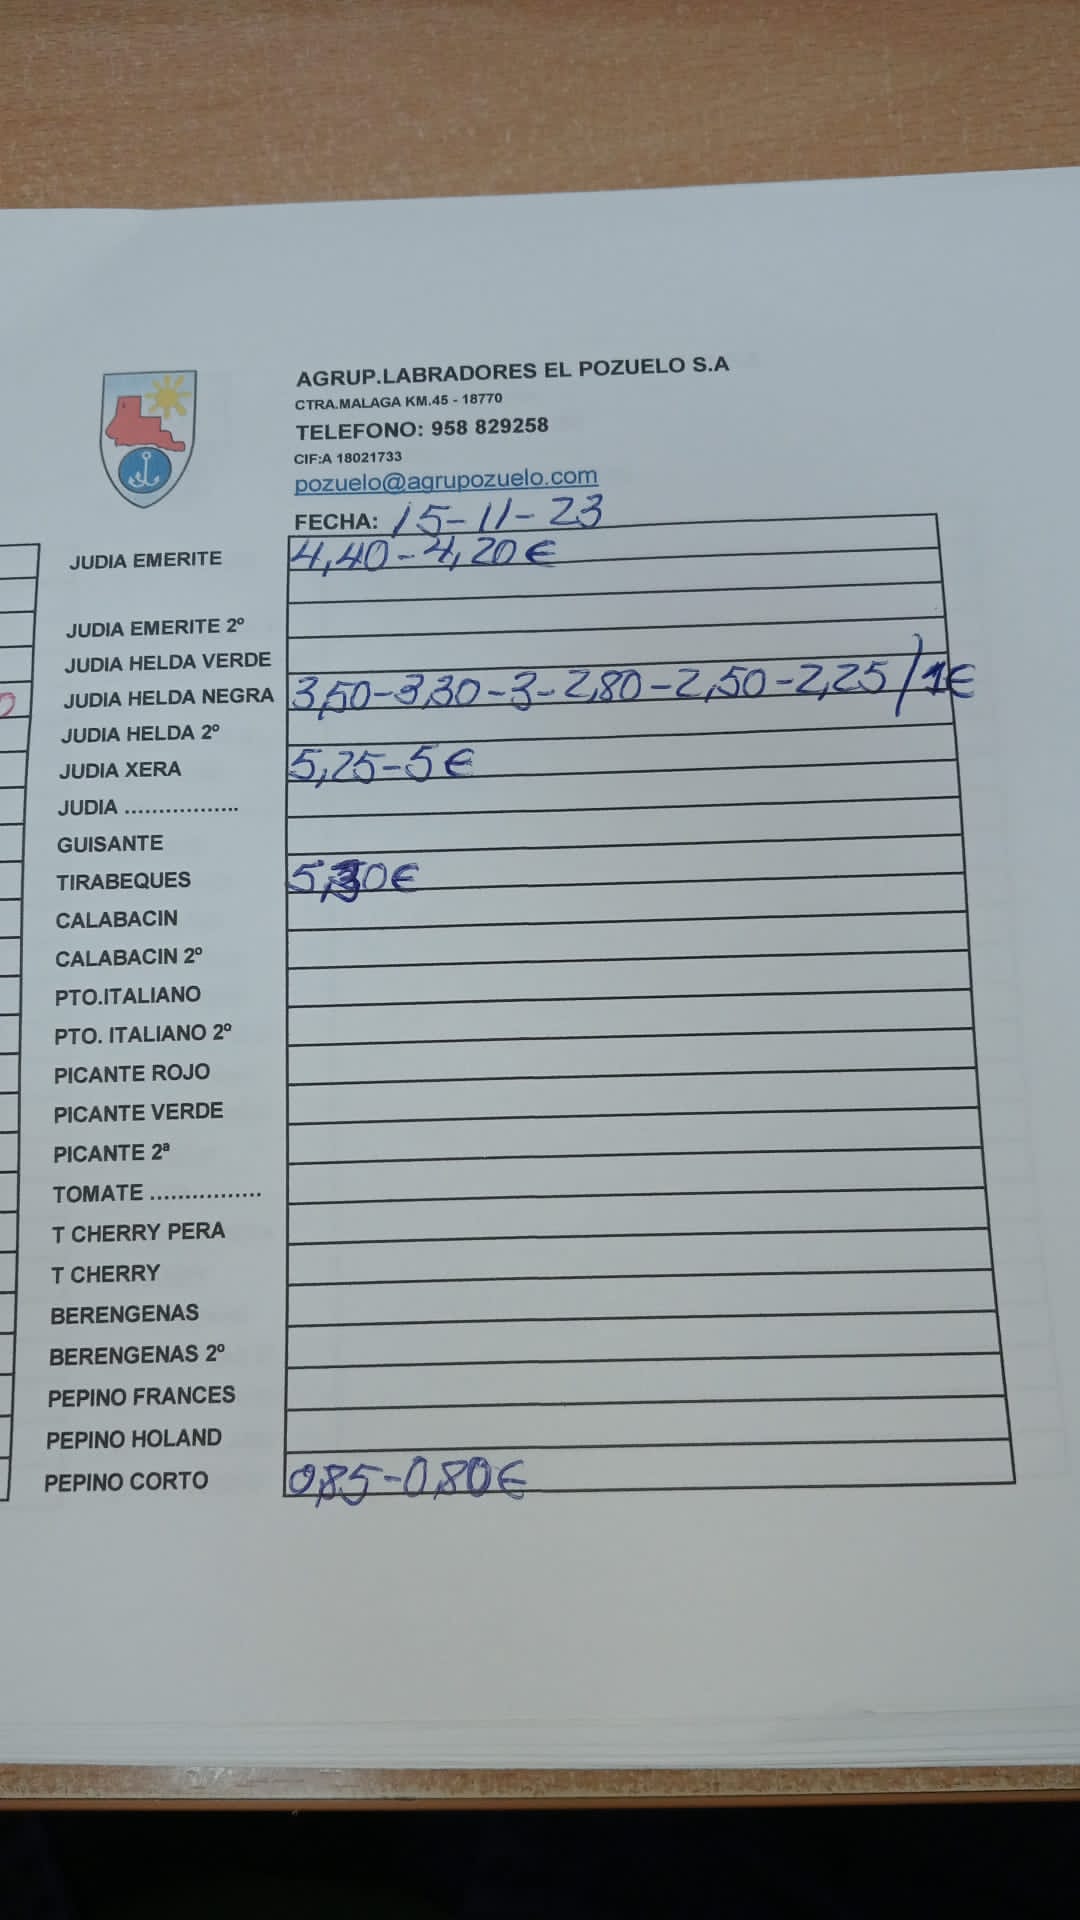 AGRUP.LABRADORES EL POZUELO S.A
CTRA.MALAGA KM.45 - 18770
TELEFONO: 958 829258
CIF:A 18021733
pozuelo@agrupozuelo.com
FECHA: 15-11-23
JUDIA EMERITE 4,40-4,20€
JUDIA EMERITE 2º
JUDIA HELDA VERDE
JUDIA HELDA NEGRA 3,50-3,30-3-2,80-2,50-2,25/1€
JUDIA HELDA 2º
JUDIA XERA 5,25-5€
JUDIA .................
GUISANTE
TIRABEQUES 5,30€
CALABACIN
CALABACIN 2º
PTO.ITALIANO
PTO. ITALIANO 2º
PICANTE ROJO
PICANTE VERDE
PICANTE 2ª
TOMATE ................
T CHERRY PERA
T CHERRY
BERENGENAS
BERENGENAS 2º
PEPINO FRANCES
PEPINO HOLAND
PEPINO CORTO 0,85-0,80€